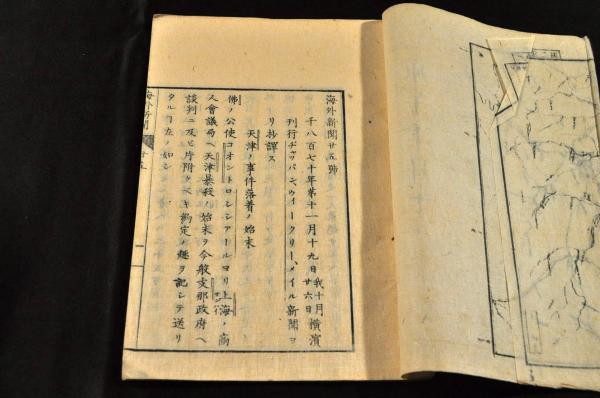 海外新聞廿五號
千八百七十年第十一月十九日我十月廿六日橫濱
刊行ヂャッパンウイークリーメイル新聞ヨ
リ抄譯ス
天津ノ事件落着ノ始末
佛ノ公使コオントロシシアールヨリ上海ノ商
人會議局ヘ天津暴殺ノ始末ヲ今般支那政府ヘ
談判ニ及ビ片附クベキ約定ノ趣ヲ記シテ送リ
タル 左ノ如シ
海外新聞
廿五
一